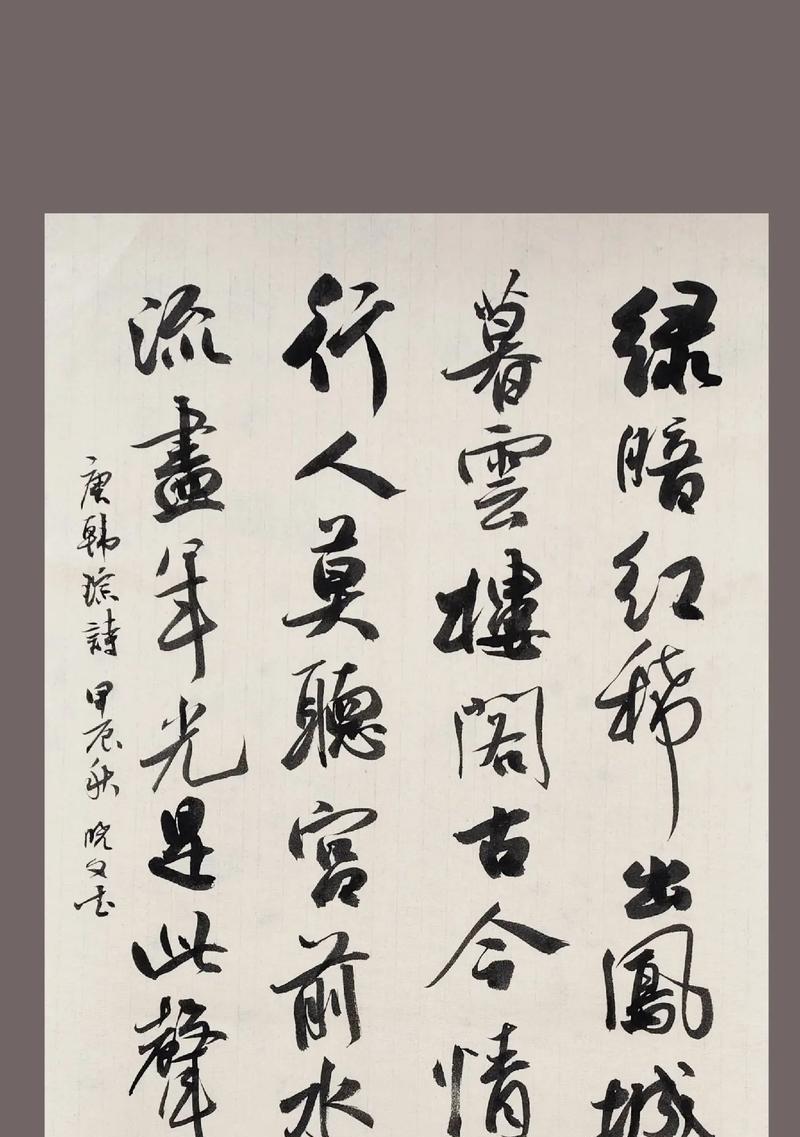 绿暗红稀出鳳城
暮雲樓閣古今情
行人莫聽宮前水
流盡年光是此聲
唐韩琮詩 甲辰秋 晓文書